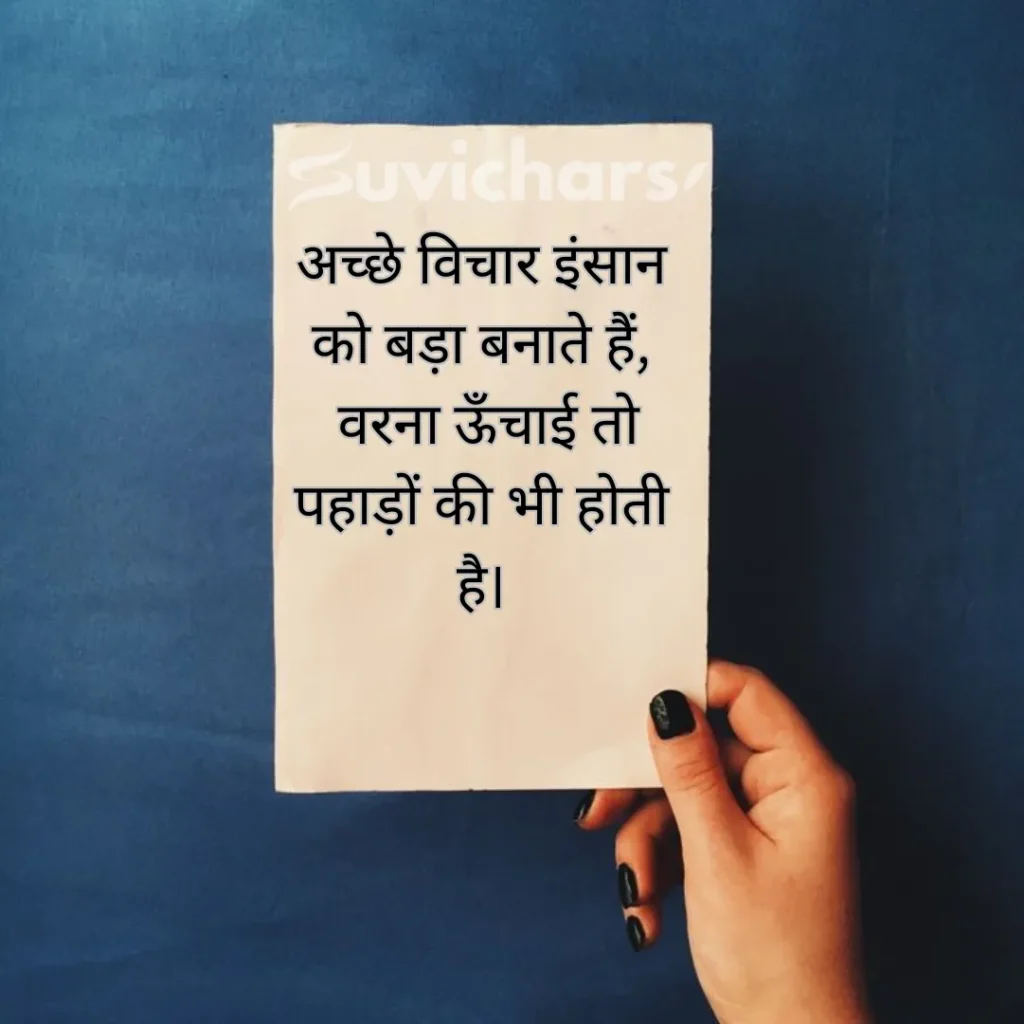 Suvichars
अच्छे विचार इंसान
को बड़ा बनाते हैं,
वरना ऊँचाई तो
पहाड़ों की भी होती
है।